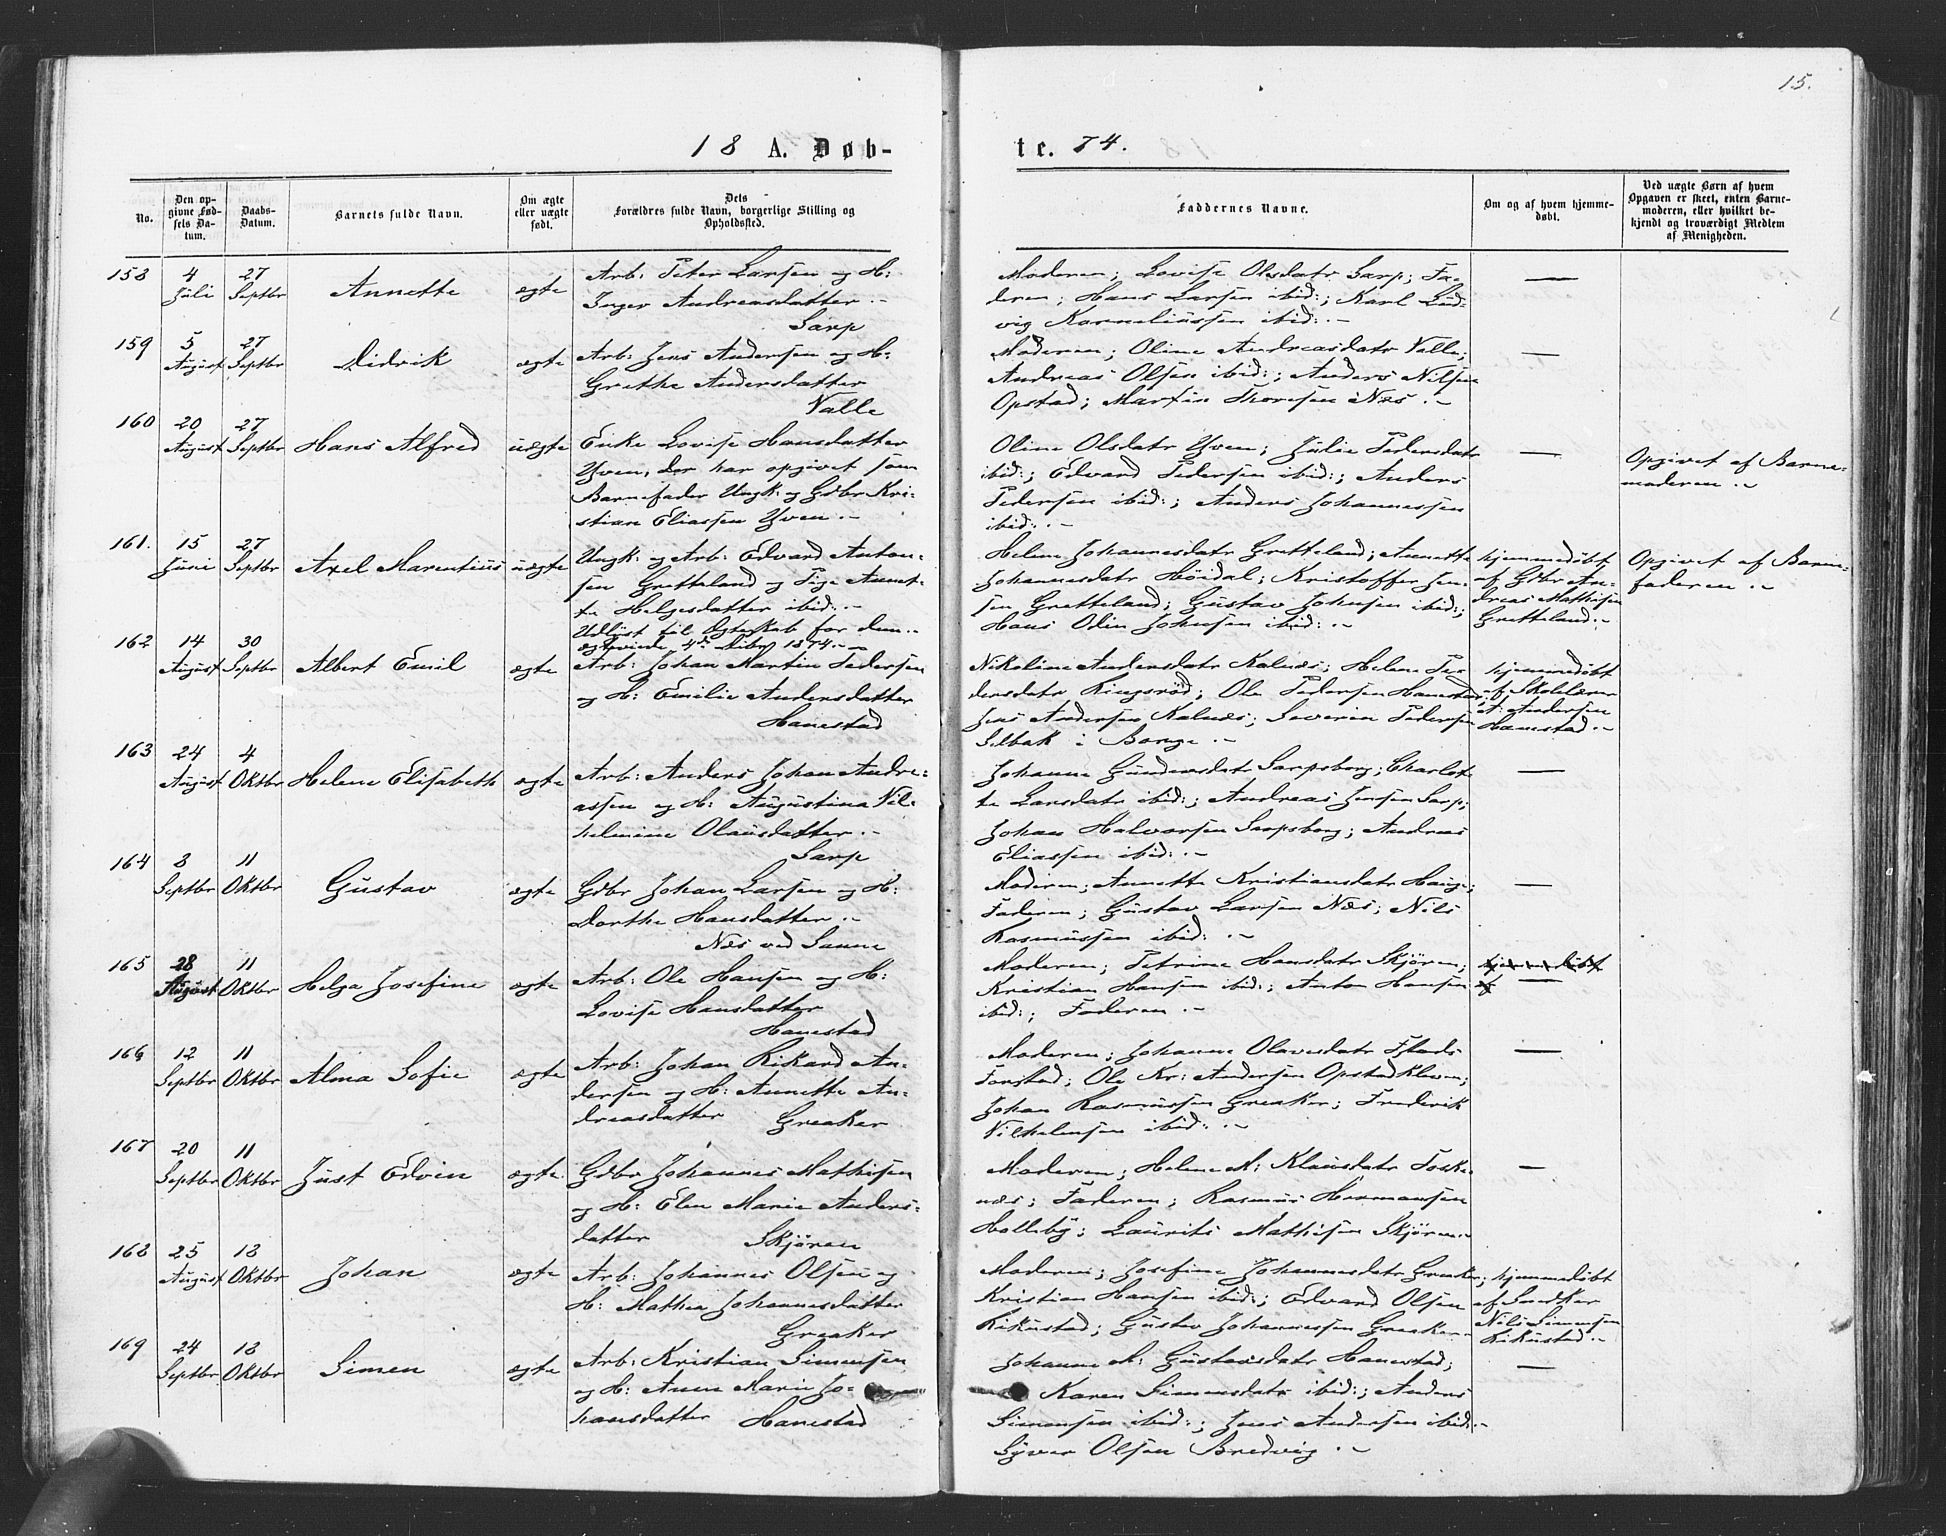 15.
18 A. Døb-
te. 74.
No.
Den op-
givne Fød-
sels Da-
tum.
Daabs-
Datum.
Barnets fulde Navn.
Om ægte
eller uægte
født.
Dets
Forældres fulde Navn, borgerlige Stilling og
Opholdssted.
Faddernes Navne.
Om og af hvem hjemme-
døbt.
Ved uægte Børn af hvem
Opgaven er skeet, enten Barne-
moderen, eller hvilket be-
kjendt og troværdigt Medlem
af Menigheden.
158
4
Juli
27
Septbr
Annette
ægte
Arb: Peter Larsen og H:
Inger Andreasdatter.-
Sarp
Moderen; Lovise Olsdatr Sarp; Fa-
deren; Hans Larsen ibid:; Karl Lud-
vig Korneliussen ibid:.-
—
159
5
August
27
Septbr
Didrik
ægte
Arb: Jens Andersen og H:
Grethe Andersdatter
Valle
Moderen; Oline Andreasdatr Valle;
Andreas Olsen ibid:; Anders Nilsen
Opstad; Martin Thoresen Næs.-
—
160
20
August
27
Septbr
Hans Alfred
uægte
Enke Lovise Hansdatter
Yven, der har opgivet som
Barnefader Ungk: og Gdbr Kri-
stian Eliassen Yven.-
Oline Olsdatr Yven; Julie Pedersdatr
ibid:; Edvard Pedersen ibid:; Anders
Pedersen ibid:; Anders Johannessen
ibid:.-
—
Opgivet af Barne-
moderen.-
161.
15
Juni
27
Septbr
Axel Marentius
uægte
Ungk: og Arb: Edvard Anton-
sen Gretteland og Pige Annet-
te Helgesdatter ibid:.-
Udlyst til Ægteskab for dem.-
ægteviede 4de Dcbr 1874.-
Helene Johannesdatr Gretteland; Annette
Johannesdatr Höidal; Kristoffer Jen-
sen Gretteland; Gustav Johnsen ibid:;
Hans Odin Johnsen ibid:.-
hjemmedøbt
af Gdbr An-
dreas Mathisen
Gretteland.-
Opgivet af Barne-
faderen.-
162
14
August
30
Septbr
Albert Emil
ægte
Arb: Johan Martin Pedersen
og H: Emilie Andersdatter
Hanestad
Nikoline Andersdatr Kalnæs; Helene Pe-
dersdatr Ringsröd; Ole Pedersen Hanestad;
Jens Andersen Kalnæs; Severin Pedersen
Selbak i Borge.-
hjemmedøbt
af Skolelærer
A: Andersen
Hanestad.-
163
24
August
4
Oktbr
Helene Elisabeth
ægte
Arb: Anders Johan Andre-
assen og H: Augustina Vil-
helmine Olausdatter.-
Sarp
Johanne Gundersdatr Sarpsborg; Charlot-
te Larsdatr ibid:; Andreas Jensen Sarp;
Johan Halvorsen Sarpsborg; Andreas
Eliassen ibid:.-
—
164
8
Septbr
11
Oktbr
Gustav
ægte
Gdbr Johan Larsen og H:
Dorthe Hansdatter.-
Næs ved Sanne
Moderen; Annette Kristiansdatr Hauge;
Faderen; Gustav Larsen Næs; Nils
Rasmussen ibid:.-
—
165
28
August
11
Oktbr
Helga Josefine
ægte
Arb: Ole Hansen og H:
Lovise Hansdatter
Hanestad
Moderen; Petrine Hansdatr Skjören;
Kristian Hansen ibid:; Anton Hansen
ibid:; Faderen.-
hjemmedøbt
af —
166
12
Septbr
11
Oktbr
Alma Sofie
ægte
Arb: Johan Rikard An-
dersen og H: Annette An-
dreasdatter Greaker
Moderen; Johanne Olavesdatr
Ole Kr: Andersen Opstad
Johan Rasmussen Greaker; Fredrik
Vilhelmsen ibid:.-
—
167
20
Septbr
11
Oktbr
Just Edvin
ægte
Gdbr Johannes Mathisen
og H: Elen Marie Anders-
datter Skjören
Moderen; Helene M: Klausdatr Toske-
næs; Faderen; Rasmus Hermansen
Halleby; Laurits Mathisen Skjören.-
—
168
25
August
18
Oktbr
Johan
ægte
Arb: Johannes Olsen og
H: Mathea Johannesdatter
Greaker
Moderen; Josefine Johannesdatr Greaker;
Kristian Hansen ibid:; Edvard Olsen
Rikustad; Gustav Johannessen Greaker.-
hjemmedøbt
af Snedker
Nils Simensen
Rikustad.-
169
24
Septbr
18
Oktbr
Simen
ægte
Arb: Kristian Simensen
og H: Anne Marie Jo-
hansdatter Hanestad
Johanne M: Gustavsdatr Hanestad;
Karen Simensdatr ibid:; Anders
Simensen ibid:; Jens Andersen ibid:-
Syver Olsen Bredvig.-
—